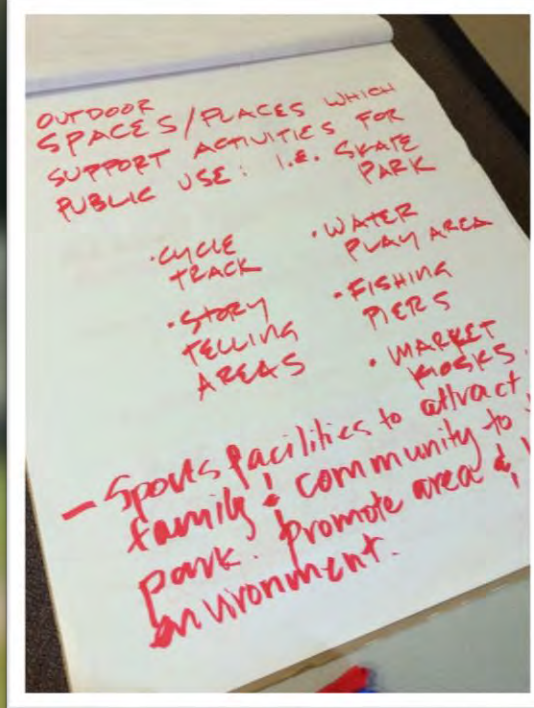 OUTDOOR
SPACES/PLACES WHICH
SUPPORT ACTIVITIES FOR
PUBLIC USE: I.E. SKATE
PARK
· CYCLE
TRACK
· STORY
TELLING
AREAS
· WATER
PLAY AREA
· FISHING
PIERS
· MARKET
KIOSKS
— Sports facilities to attract
family & community to
park. Promote area &
environment.